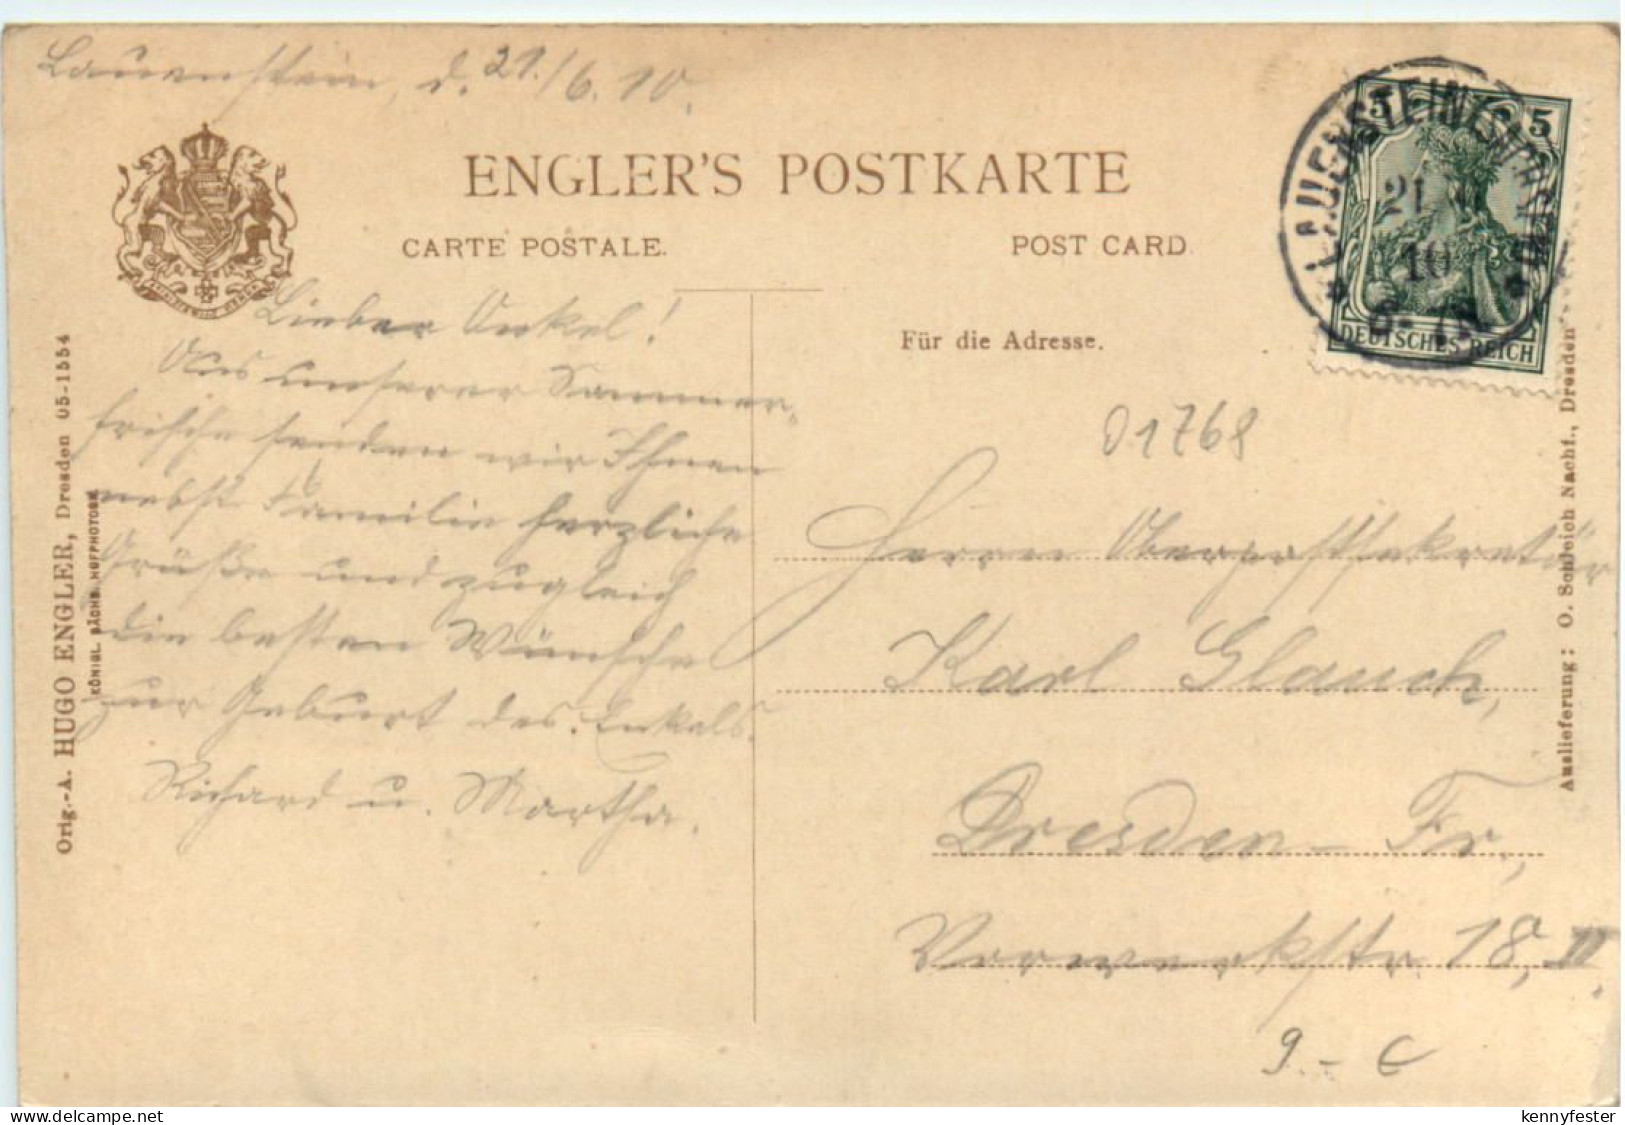 Lauenstein, d. 21./6. 10.
ENGLER'S POSTKARTE
CARTE POSTALE.
POST CARD
Für die Adresse.
LAUENSTEIN
21
6
10
5
5
DEUTSCHES REICH
Lieber Onkel!
Aus unserer Sommer-
frische senden wir Ihnen
nebst Familie herzliche
Grüße und zugleich
die besten Wünsche
zur Geburt des Enkels.
Richard u. Martha.
01768
Herrn Oberpostsekretär
Karl Glauch,
Dresden – Fr.,
Vorwerkstr. 18, II.
9.- €
Orig.-A. HUGO ENGLER, Dresden 05-1554
KÖNIGL. SÄCHS. HOFPHOTOGR.
Auslieferung: O. Schleich Nachf., Dresden
delcampe.net
kennyfester